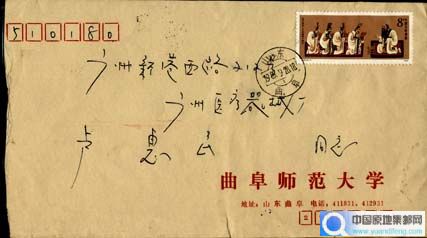 510180
8分
山东
曲阜
广州新港西路
广州医疗器械厂
卢惠 同志
曲阜师范大学
地址:山东曲阜 电话:411831,412931
中国原地集邮网
www.yuandifeng.com